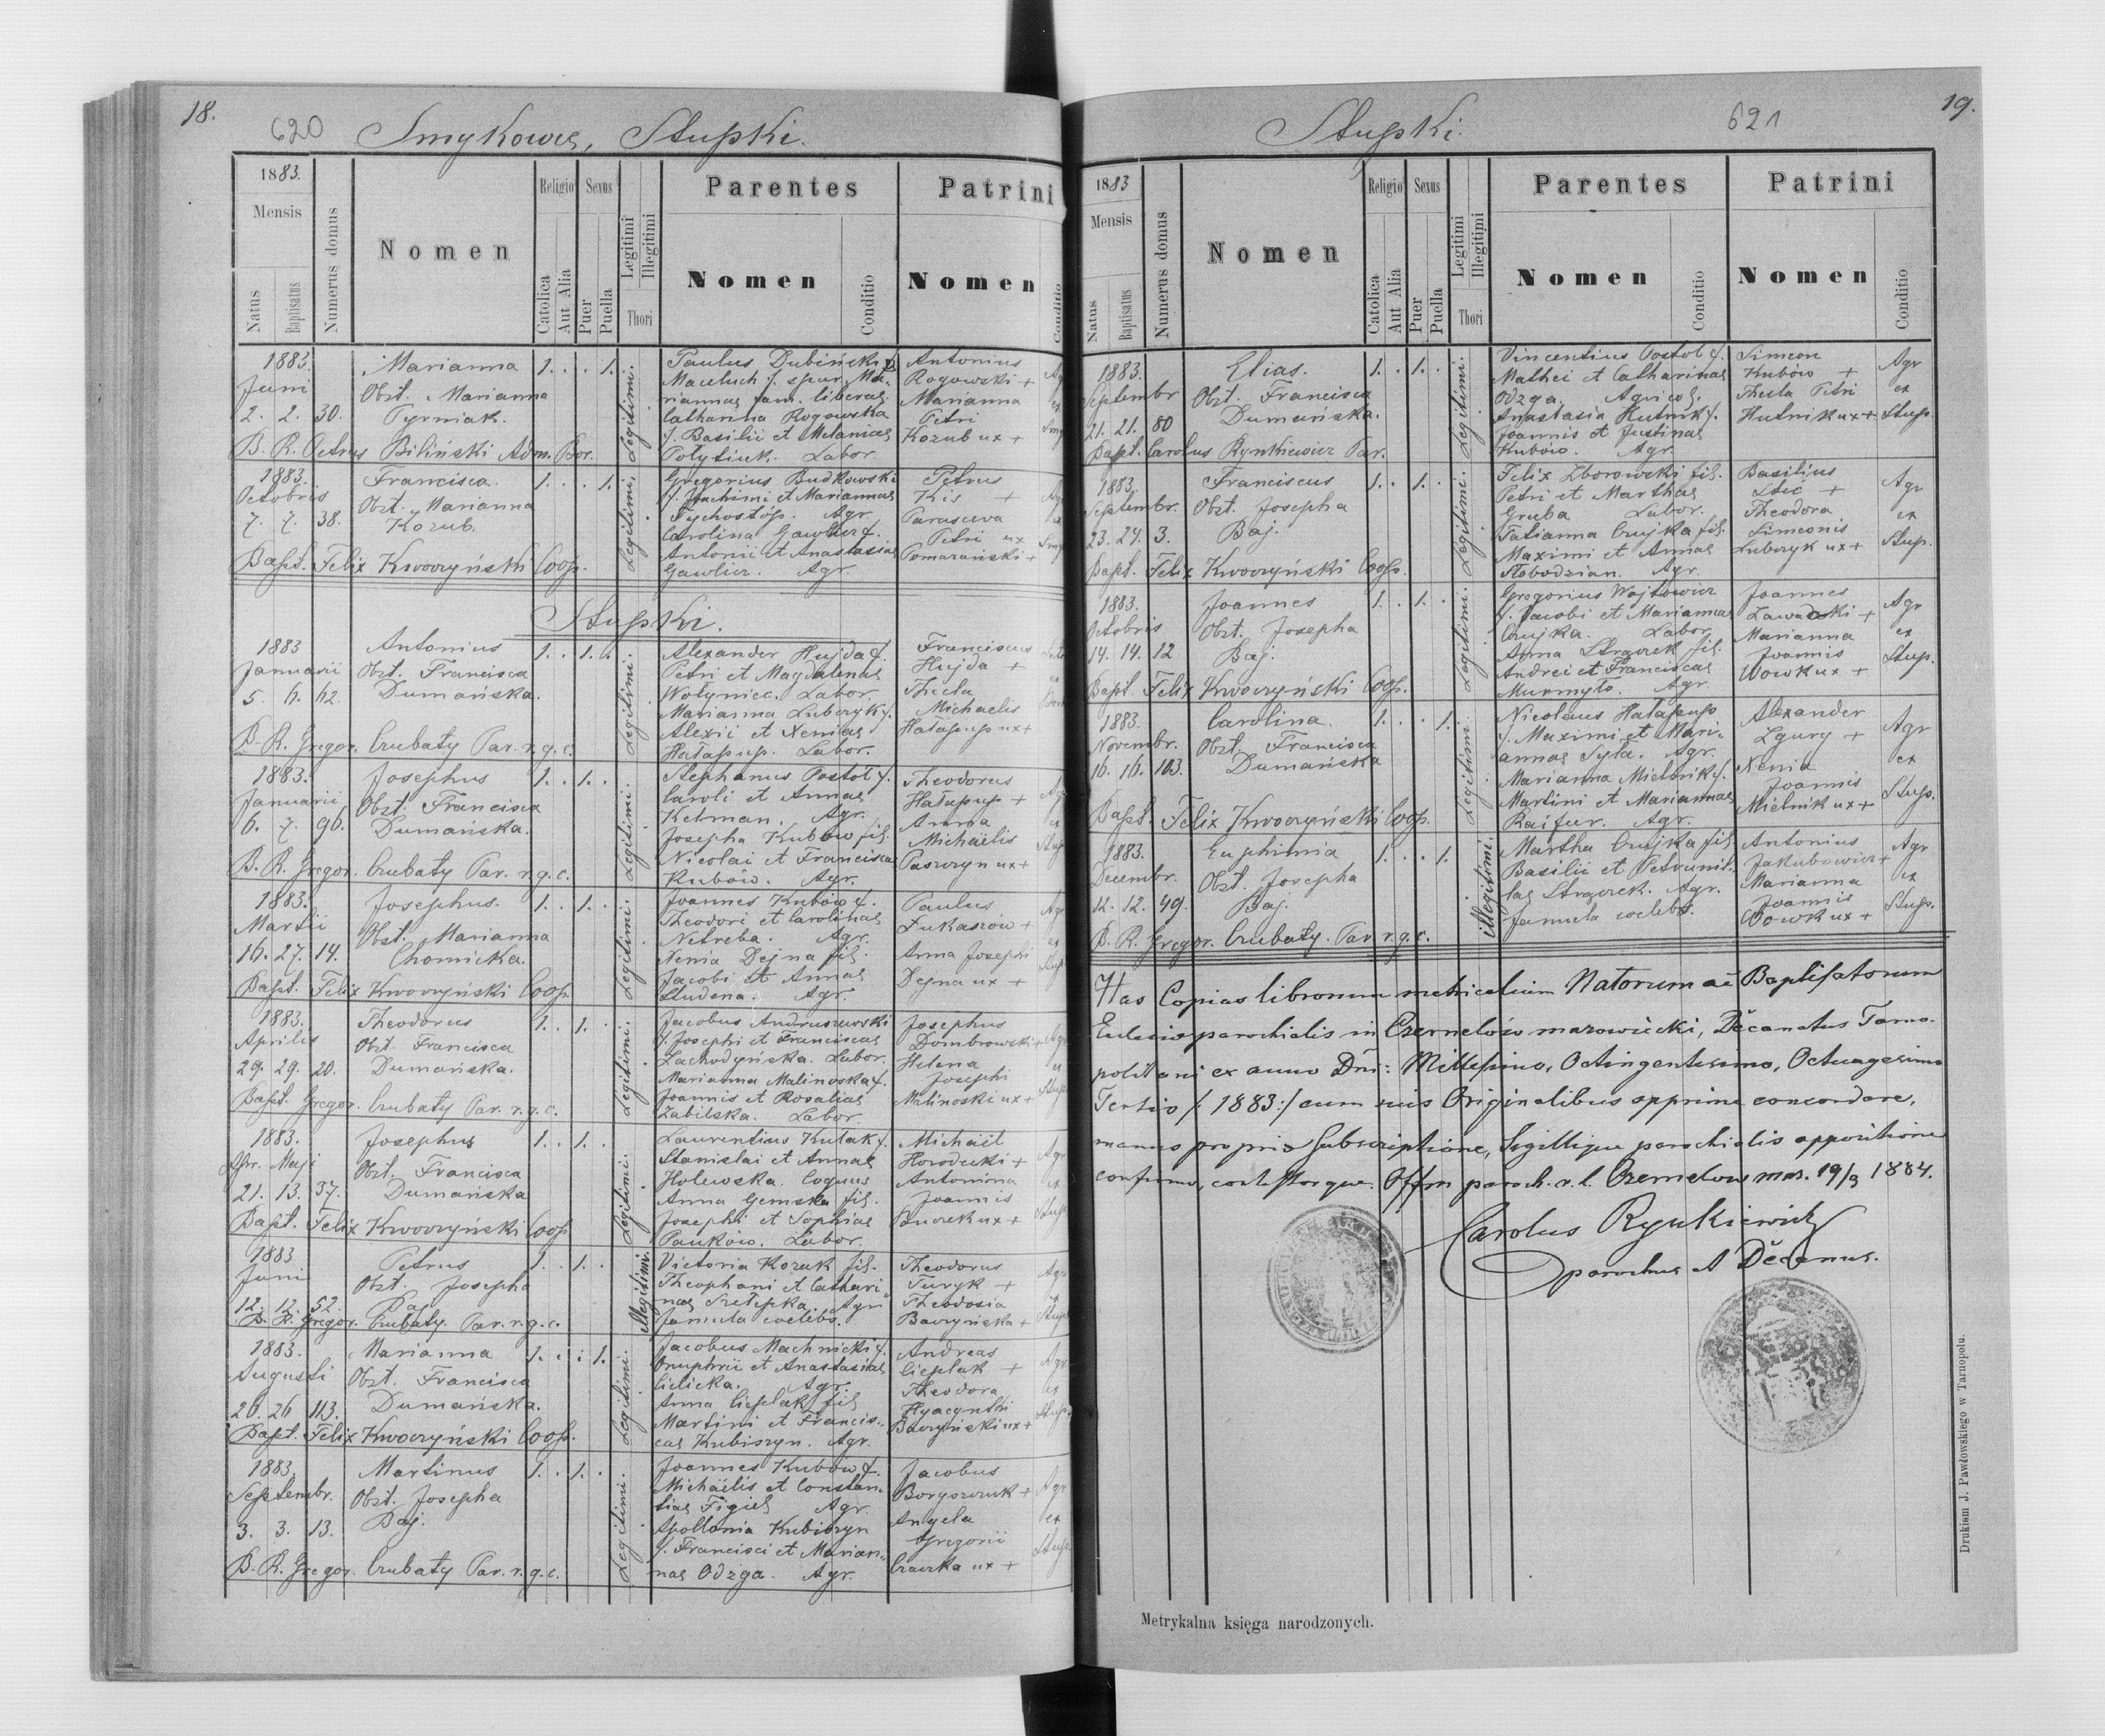 18.
620 Smykowce, Stupki.
1883.
Mensis
Natus
Baptisatus
Numerus domus
Nomen
Religio
Catolica
Aut Alia
Sexus
Puer
Puella
Legitimi
Illegitimi
Thori
Parentes
Nomen
Conditio
Patrini
Nomen
Conditio
1883.
Juni
2. 2. 30.
Marianna
Obst. Marianna
Pyrniak.
1. . . 1.
Legitimi.
Paulus Dubiński
Maceluch f. spur. Ma-
riannae fam. liberae.
Catharina Rogowska
f. Basilii et Melaniae
Polytiuk. Labor.
Antonius
Rogowski +
Marianna
Petri
Kozub ux +
B. R. Petrus Biliński Adm. Bor.
1883.
Octobris
7. 7. 38.
Francisca
Obst. Marianna
Kozub.
1. . . 1.
Legitimi.
Gregorius Budkowski
f. Joachimi et Mariannae
Tychostóp. Agr.
Carolina Gawlicz f.
Antonii et Anastasiae
Gawlicz. Agr.
Petrus
Kis +
Parasceva
Petri ux
Pomarański +
Bapt. Felix Kwoczyński Coop.
Stupki.
1883
Januarii
5. 6. 62.
Antonius
Obst. Francisca
Dumańska.
1. . 1. .
Legitimi.
Alexander Hujda f.
Petri et Magdalenae
Wołyniec. Labor.
Marianna Luberyk f.
Alexii et Xeniae
Hałapup. Labor.
Franciscus
Hujda +
Thecla
Michaelis
Hałapup ux +
B. R. Gregor. Czubaty Par. r. g. c.
1883.
Januarii
6. 7. 96.
Josephus
Obst. Francisca
Dumańska.
1. . 1. .
Legitimi.
Stephanus Postół f.
Caroli et Annae
Kelman. Agr.
Josepha Kubów fil.
Nicolai et Francisca
Kubów. Agr.
Theodorus
Hałapup +
Anna
Michaëlis
Paszczyn ux +
B. R. Gregor. Czubaty Par. r. g. c.
1883.
Martii
16. 27. 14.
Josephus.
Obst. Marianna
Chomicka.
1. . 1. .
Legitimi.
Joannes Kubów f.
Theodori et Carolinae
Netreba. Agr.
Xenia Dejna fil.
Jacobi et Annae
Studena. Agr.
Paulus
Łukasiów +
Anna Josephi
Dejna ux +
Bapt. Felix Kwoczyński Coop.
1883.
Aprilis
29. 29. 20.
Theodorus
Obst. Francisca
Dumańska.
1. . 1. .
Legitimi.
Jacobus Andruszewski
f. Josephi et Franciscae
Lachodyńska. Labor.
Marianna Malinoska f.
Joannis et Rosaliae
Zabilska. Labor.
Josephus
Dombrowski +
Helena
Josephi
Malinoski ux +
Bapt. Gregor. Czubaty Par. r. g. c.
1883.
Apr. Maji
21. 13. 37.
Josephus
Obst. Francisca
Dumańska
1. . 1. .
Legitimi.
Laurentius Kułak f.
Stanislai et Annae
Holewska. Coquus
Anna Gemska fil.
Josephi et Sophiae
Pańków. Labor.
Michaël
Horodecki +
Antonina
Joannis
ux +
Bapt. Felix Kwoczyński Coop
1883
Juni
12. 12. 52.
Petrus
Obst. Josepha
Baj
1. . 1. .
illegitimi.
Victoria Kozak fil.
Theophani et Cathari-
nae Agri
famula coelebs.
Theodorus
Turyk +
Theodosia
Baczyńska +
B. R. Gregor. Czubaty. Par. r. g. c.
1883.
Augusti
26. 26 113.
Marianna
Obst. Francisca
Dumańska.
1. . . 1.
Legitimi.
Jacobus Machnicki f.
Onuphrii et Anastasiae
Cielicka. Agr.
Anna Cieplak fil
Martini et Francis-
cae Kubiszyn. Agr.
Andreas
Cieplak +
Theodora
Hyacynthi
Baczyński ux +
Bapt. Felix Kwoczyński Coop.
1883.
Septembr.
3. 3. 13.
Martinus
Obst. Josepha
Baj.
1. . 1. .
Legitimi.
Joannes Kubów f.
Michaëlis et Constan-
tiae Figiel Agr.
Apollonia Kubiszyn
f. Francisci et Marian-
nae Odzga. Agr.
Jacobus
Boryszczuk +
Angela
Gregorii
ux +
B. R. Gregor. Czubaty Par. r. g. c.
19.
Stupki. 621
1883
Mensis
Natus
Baptisatus
Numerus domus
Nomen
Religio
Catolica
Aut Alia
Sexus
Puer
Puella
Legitimi
Illegitimi
Thori
Parentes
Nomen
Conditio
Patrini
Nomen
Conditio
1883.
Septembr
21. 21. 80
Elias.
Obst. Francisca
Dumańska.
1. . 1. .
Legitimi.
Vincentius Postół f.
Mathei et Catharinae
Odzga. Agricol.
Anastasia Hutnik f.
Joannis et Justinae
Kubów. Agr.
Simeon
Kubów +
Thecla Petri
Hutnik ux +
Agr
ex
Stup.
Bapt. Carolus Rynkiewicz Par.
1883.
Septembr.
23. 24. 3.
Franciscus
Obst. Josepha
Baj.
1. . 1. .
Legitimi.
Felix Zborowski fil.
Petri et Marthae
Gruba Labor.
Tatianna Czujka fil.
Maximi et Annae
Słobodzian. Agr.
Basilius
+
Theodora
Simeonis
Luberyk ux +
Agr
ex
Stup.
Bapt. Felix Kwoczyński Coop.
1883.
Octobris
14. 14. 12
Joannes
Obst. Josepha
Baj.
1. . 1. .
Legitimi.
Gregorius Wojtowicz
f. Jacobi et Mariannae
Czujka. Labor.
Anna fil.
Andrei et Franciscae
Murmyło. Agr.
Joannes
Zawadzki +
Marianna
Joannis
Wowk ux +
Agr
ex
Stup.
Bapt. Felix Kwoczyński Coop.
1883.
Novembr.
16. 16. 103.
Carolina.
Obst. Francisca
Dumańska
1. . . 1.
Legitimi.
Nicolaus Hałapup
f. Maximi et Mari-
annae Syła. Agr.
Marianna Mielnik f.
Martini et Mariannae
Rajfur. Agr.
Alexander
Zgury +
Xenia
Joannis
Mielnik ux +
Agr
ex
Stup.
Bapt. Felix Kwoczyński Coop.
1883.
Decembr.
12. 12. 49.
Euphimia
Obst. Josepha
Baj.
1. . . 1.
illegitimi.
Martha Czujka fil
Basilii et Petronil-
lae Agr.
famula coelebs.
Antonius
Jakubowicz +
Marianna
Joannis
Wowk ux +
Agr
ex
Stup.
B. R. Gregor. Czubaty. Par r. g. c.
Has Copias librorum metricalium Natorum ac Baptisatorum
Ecclesiae parochialis in Czernelów mazowiecki, Decanatus Tarno-
politani ex anno Dni: Millesimo, Octingentesimo, Octuagesimo
Tertio /: 1883:/ cum suis Originalibus apprime concordare,
manus propriae Subscriptione, Sigillique parochialis appositione
confirmo, contestorque. Offm paroch. r. l. Czernelów maz. 19/3 1884.
Carolus Rynkiewicz
parochus et Decanus.
Metrykalna księga narodzonych.
Drukiem J. Pawłowskiego w Tarnopolu.